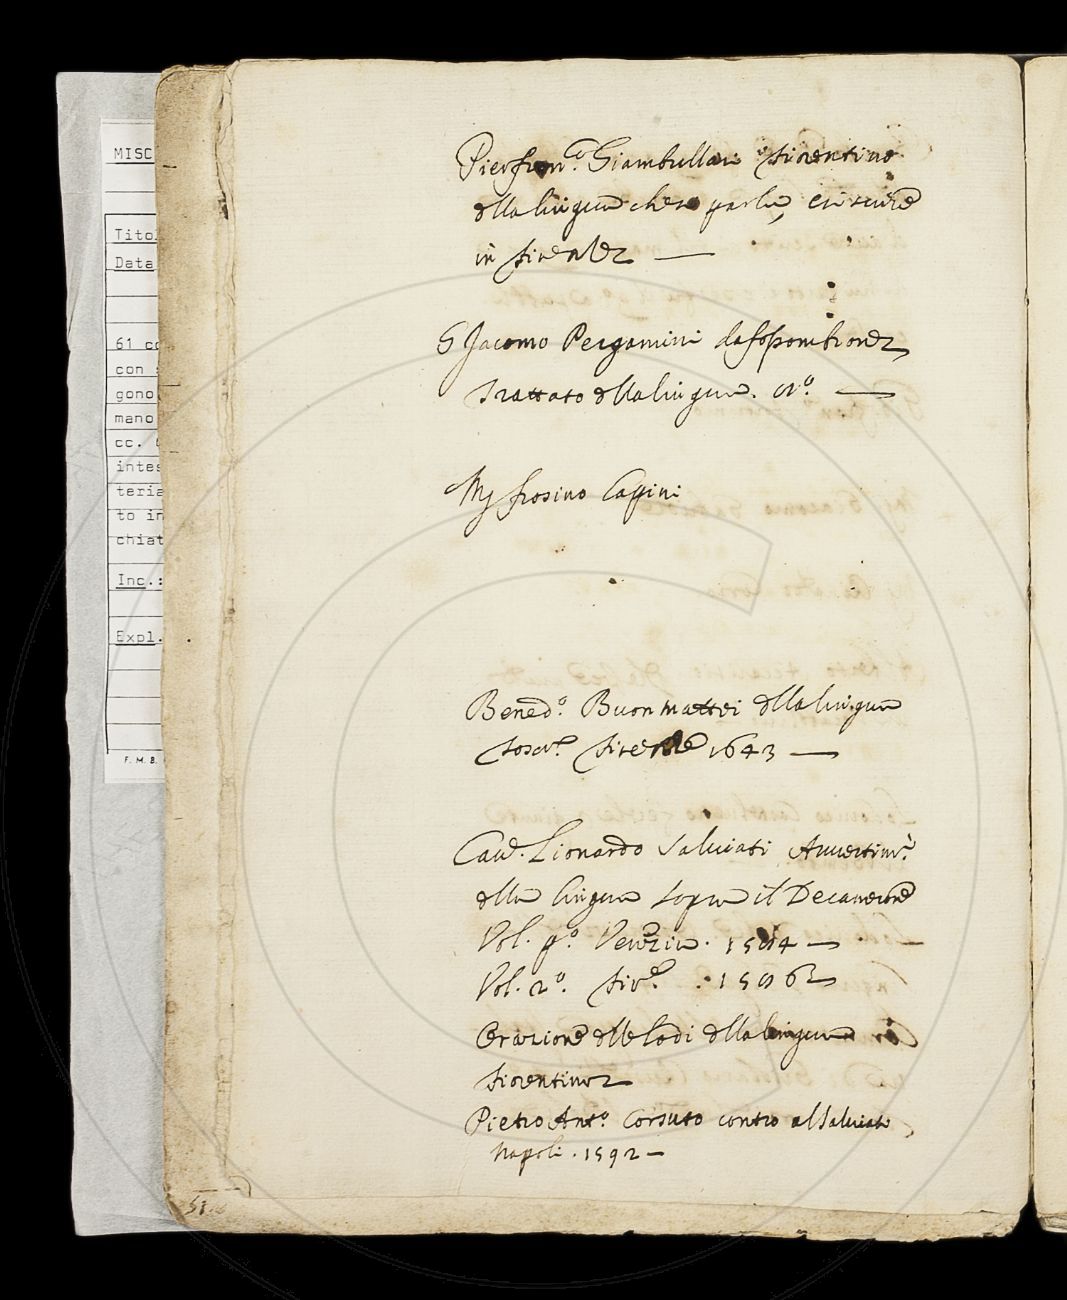 MISC
Titol
Data
61 cc
con s
gono
mano
cc.
intes
teria
to in
chiat
Inc.:
Expl.
F. M. B.
Pierfran.co Giambullari fiorentino
della lingua che si parla, e si scrive
in firenze —
G Jacomo Pergamini da fossombrone,
Trattato della lingua. —
Mʃ frosino Lapini
Bened.o Buonmattei della lingua
Tosca. firenze 1643 —
Cav. Lionardo Salviati Avvertim.i
della lingua sopra il Decamerone
Vol. p.o Venezia. 1584 —
Vol. 2.o fir.e . 1586 —
Orazione delle lodi della lingua
fiorentina
Pietro Ant.o Corsuto contro al Salviati
Napoli . 1592 —
51.